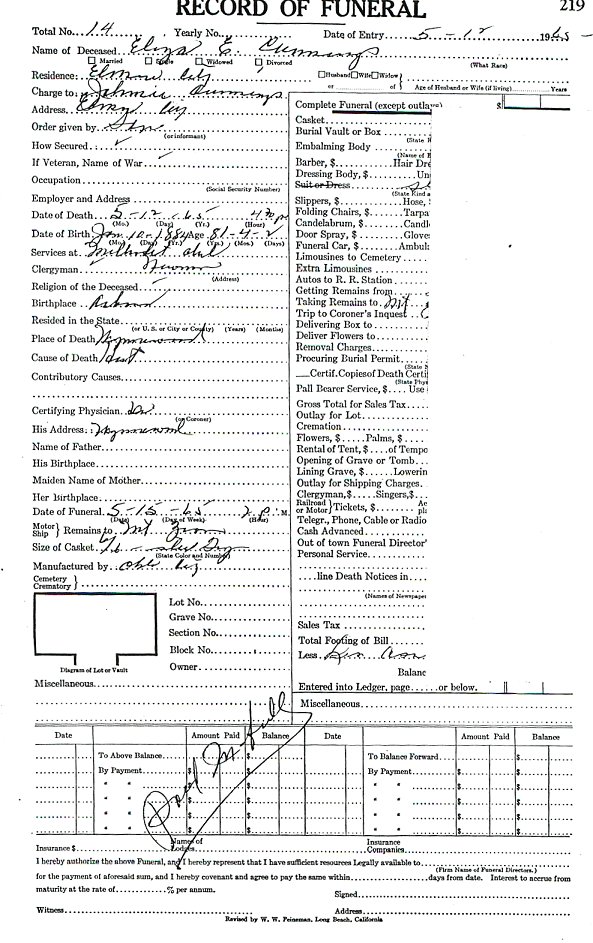 RECORD OF FUNERAL
219
Total No. 14 Yearly No. Date of Entry 5-12 1965
Name of Deceased Eliza E. Cummings
(What Race)
Married Single Widowed Divorced
Residence: City Husband Wife Widow of
or of Age of Husband or Wife (if living) Years
Charge to: Johnnie Cummings
Address City
Order given by Son
(or informant)
How Secured
If Veteran, Name of War
Occupation
(Social Security Number)
Employer and Address
Date of Death 5-12-65 4:30 P
(Mo.) (Day) (Yr.) (Hour)
Date of Birth Jan. 10-1884 Age 81-4-2
(Mo.) (Day) (Yr.) (Yrs.) (Mos.) (Days)
Services at Methodist
Clergyman
(Address)
Religion of the Deceased
Birthplace
Resided in the State
(or U. S. or City or County) (Years) (Months)
Place of Death
Cause of Death
Contributory Causes
Certifying Physician Dr
(or Coroner)
His Address:
Name of Father
His Birthplace
Maiden Name of Mother
Her Birthplace
Date of Funeral 5-15-65 2 P. M.
(Date) (Day of Week) (Hour)
Motor Ship } Remains to Mt Zion
Size of Casket
(State Color and Number)
Manufactured by
Cemetery Crematory }
Lot No.
Grave No.
Section No.
Block No.
Owner
Diagram of Lot or Vault
Miscellaneous
Complete Funeral (except outlay $
Casket
Burial Vault or Box
(State
Embalming Body
(Name of
Barber, $ Hair Dre
Dressing Body, Un
Suit or Dress
(State Kind a
Slippers, $ Hose,
Folding Chairs, $ Tarpa
Candelabrum, $ Candl
Door Spray, $ Glove
Funeral Car, $ Ambul
Limousines to Cemetery
Extra Limousines
Autos to R. R. Station
Getting Remains from
Taking Remains to Mt
Trip to Coroner's Inquest
Delivering Box to
Deliver Flowers to
Removal Charges
Procuring Burial Permit
Certif. Copies of Death Certi
(State Phys
Pall Bearer Service, $ Use
Gross Total for Sales Tax
Outlay for Lot
Cremation
Flowers, $ Palms, $
Rental of Tent, $ of Tempo
Opening of Grave or Tomb
Lining Grave, $ Lowerin
Outlay for Shipping Charges
Clergyman, $ Singers, $
Railroad or Motor } Tickets, $
Telegr., Phone, Cable or Radio
Cash Advanced
Out of town Funeral Director'
Personal Service
line Death Notices in
(Names of Newspaper
Sales Tax
Total Footing of Bill
Less
Balanc
Entered into Ledger, page or below.
Miscellaneous
Date Amount Paid Balance Date Amount Paid Balance
To Above Balance $ To Balance Forward $
By Payment $ By Payment $
" " $ " " $
" " $ " " $
" " $ " " $
" " $ " " $
Paid In full
Insurance $ Name of Lodges Insurance Companies
I hereby authorize the above Funeral, and I hereby represent that I have sufficient resources Legally available to
(Firm Name of Funeral Directors.)
for the payment of aforesaid sum, and I hereby covenant and agree to pay the same within days from date. Interest to accrue from
maturity at the rate of % per annum.
Signed
Witness Address
Revised by W. W. Peineman, Long Beach, California